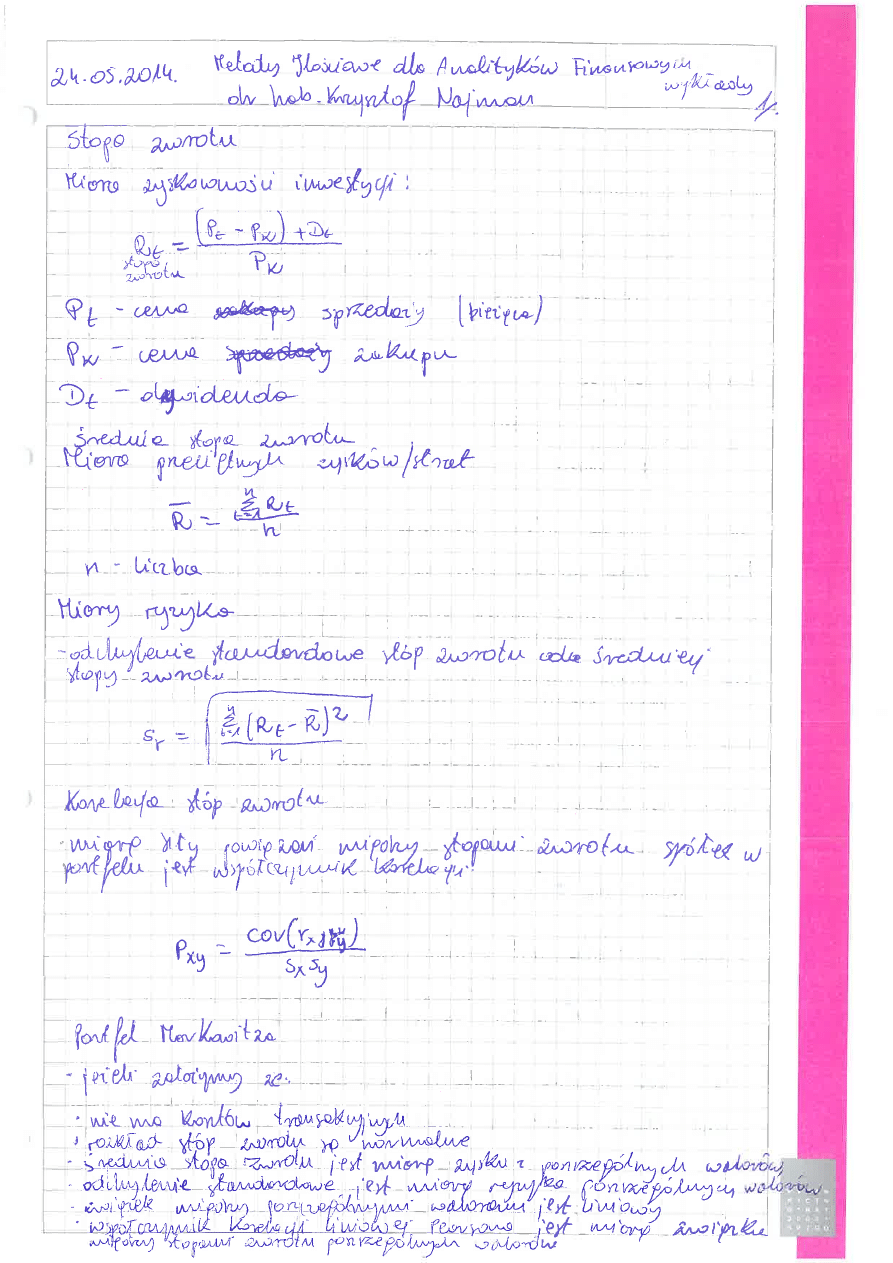 24.05.2014. Metody Ilościowe dla Analityków Finansowych
wykłady
dr hab. Krzysztof Najman
1/.
Stopa zwrotu
Miara zyskowności inwestycji:
R_t = ((P_t - P_k) + D_t) / P_k
stopa
zwrotu
P_t - cena zakupy sprzedaży (bieżąca)
P_k - cena sprzedaży zakupu
D_t - dywidenda
Średnia stopa zwrotu
Miara przeciętnych zysków/strat
R̄ = (Σ_{t=1}^{n} R_t) / n
n - liczba
Miary ryzyka
- odchylenie standardowe stóp zwrotu od średniej
stopy zwrotu
s_r = √(Σ_{t=1}^{n} (R_t - R̄)² / n)
Korelacja stóp zwrotu
- miarą siły powiązań między stopami zwrotu spółek w
portfelu jest współczynnik korelacji:
P_xy = cov(r_x, r_y) / s_x s_y
Portfel Markowitza
- jeżeli założymy że.
· nie ma kosztów transakcyjnych
· rozkład stóp zwrotu są normalne
· średnia stopa zwrotu jest miarą zysku z poszczególnych walorów
· odchylenie standardowe jest miarą ryzyka poszczególnych walorów
· związek między poszczególnymi walorami jest liniowy
· współczynnik korelacji liniowej Pearsona jest miarą związku
między stopami zwrotu poszczególnych walorów